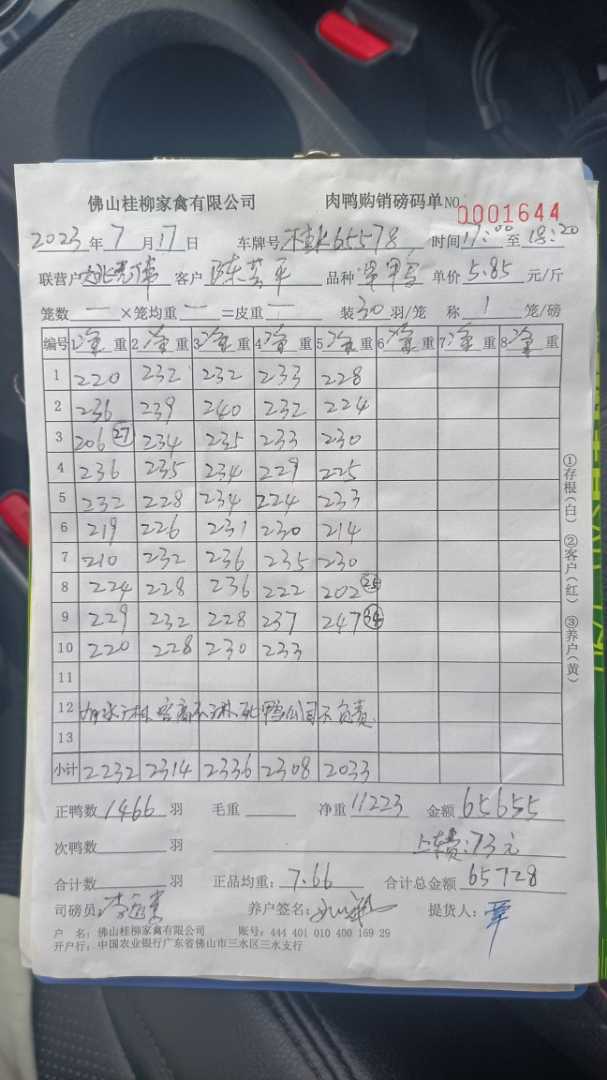 佛山桂柳家禽有限公司 肉鸭购销磅码单 NO 0001644
2023年7月17日 车牌号 桂K65578 时间17:00至18:20
联营户 客户 陈 平 品种 单价5.85元/斤
笼数 一 ×笼均重 一 =皮重 一 装30羽/笼 称 1 笼/磅
编号 1净重 2净重 3净重 4净重 5净重 6净重 7净重 8净重
1 220 232 232 233 228
2 236 239 240 232 224
3 206 27 234 235 233 230
4 236 235 234 229 225
5 232 228 234 224 233
6 219 226 231 230 214
7 210 232 236 235 230
8 224 228 236 222 202 25
9 229 232 228 237 247 34
10 220 228 230 233
11
12 鸭公司不负责
13
小计 2232 2314 2336 2308 2033
正鸭数1466羽 毛重 净重11223 金额65655
次鸭数 羽 上车费:73元
合计数 羽 正品均重:7.66 合计总金额65728
司磅员: 养户签名: 提货人:覃
户 名: 佛山桂柳家禽有限公司 账号: 444 401 010 400 169 29
开户行: 中国农业银行广东省佛山市三水区三水支行
①存根(白) ②客户(红) ③养户(黄)